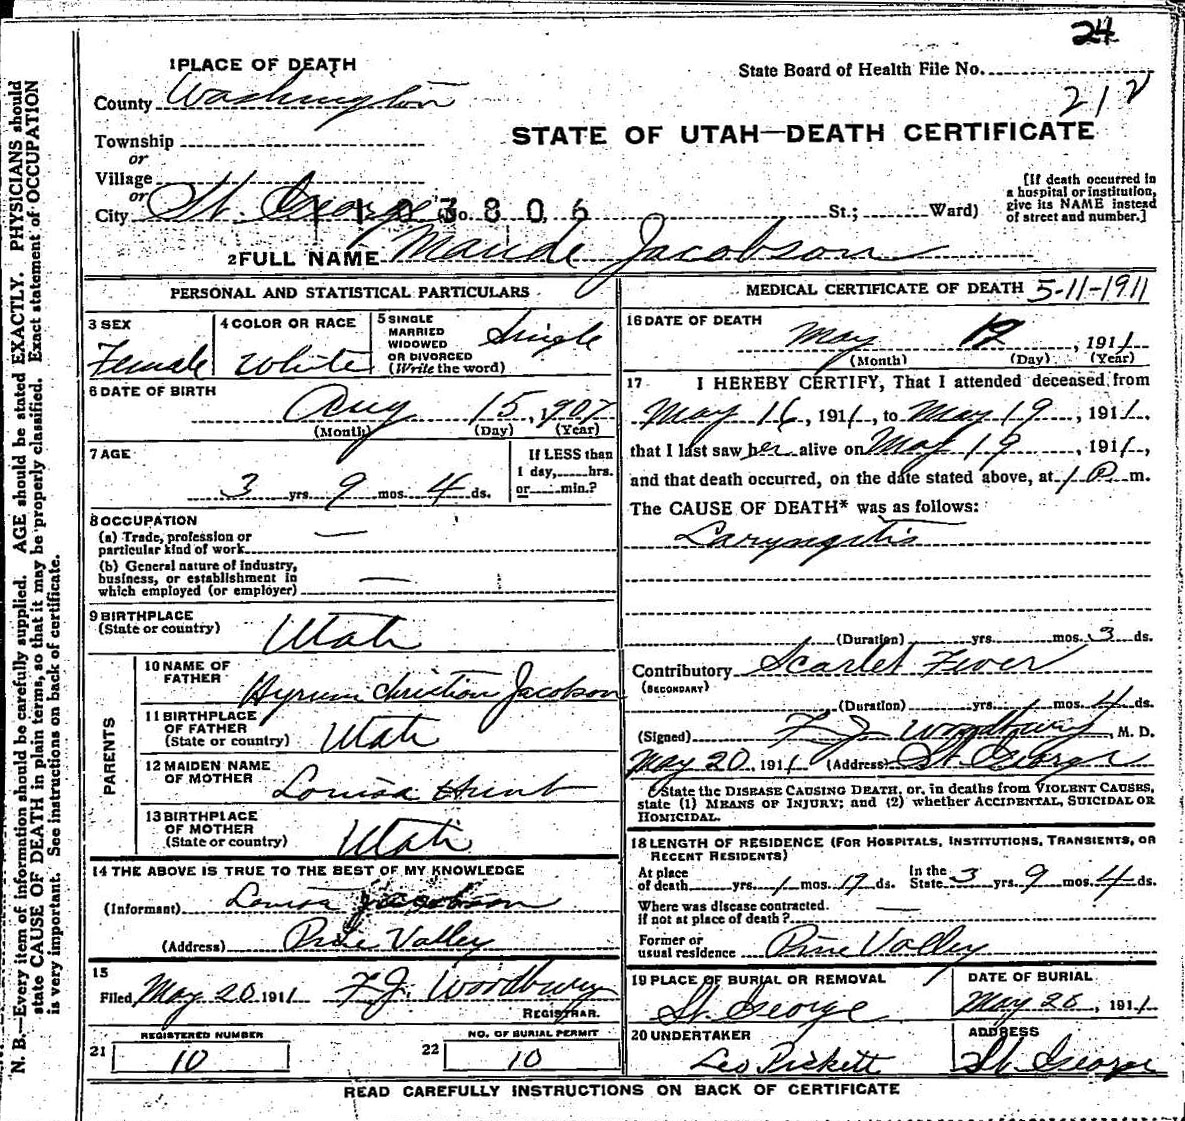 24
1 PLACE OF DEATH
State Board of Health File No.
212
County Washington
STATE OF UTAH—DEATH CERTIFICATE
Township
or
Village
or
City St. George No. St.; Ward)
1103806
[If death occurred in
a hospital or institution,
give its NAME instead
of street and number.]
2 FULL NAME Maude Jacobson
PERSONAL AND STATISTICAL PARTICULARS
3 SEX
Female
4 COLOR OR RACE
White
5 SINGLE
MARRIED
WIDOWED
OR DIVORCED
(Write the word)
Single
6 DATE OF BIRTH
Aug 15, 1907
(Month) (Day) (Year)
7 AGE
3 yrs. 9 mos. 4 ds.
If LESS than
1 day, hrs.
or min.?
8 OCCUPATION
(a) Trade, profession or
particular kind of work —
(b) General nature of industry,
business, or establishment in
which employed (or employer) —
9 BIRTHPLACE
(State or country) Utah
PARENTS
10 NAME OF
FATHER Hyrum Christian Jacobson
11 BIRTHPLACE
OF FATHER
(State or country) Utah
12 MAIDEN NAME
OF MOTHER Louisa Hunt
13 BIRTHPLACE
OF MOTHER
(State or country) Utah
14 THE ABOVE IS TRUE TO THE BEST OF MY KNOWLEDGE
(Informant) Louisa Jacobson
(Address) Pine Valley
15
Filed May 20 1911 F. J. Woodbury
REGISTRAR.
REGISTERED NUMBER
21 10
NO. OF BURIAL PERMIT
22 10
MEDICAL CERTIFICATE OF DEATH 5-11-1911
16 DATE OF DEATH
May , 1911
(Month) (Day) (Year)
17 I HEREBY CERTIFY, That I attended deceased from
May 16, 1911, to May 19, 1911,
that I last saw her alive on May 19, 1911,
and that death occurred, on the date stated above, at 1 P. m.
The CAUSE OF DEATH* was as follows:
Laryngitis
(Duration) yrs. mos. 3 ds.
Contributory Scarlet Fever
(SECONDARY)
(Duration) yrs. mos. 4 ds.
(Signed) F. J. Woodbury, M. D.
May 20, 1911 (Address) St. George
*State the DISEASE CAUSING DEATH, or, in deaths from VIOLENT CAUSES,
state (1) MEANS OF INJURY; and (2) whether ACCIDENTAL, SUICIDAL OR
HOMICIDAL.
18 LENGTH OF RESIDENCE (FOR HOSPITALS, INSTITUTIONS, TRANSIENTS, OR
RECENT RESIDENTS)
At place
of death yrs. 1 mos. 17 ds.
In the
State 3 yrs. 9 mos. 4 ds.
Where was disease contracted.
if not at place of death? —
Former or
usual residence Pine Valley
19 PLACE OF BURIAL OR REMOVAL
St. George
DATE OF BURIAL
May 20, 1911
20 UNDERTAKER
Leo Pickett
ADDRESS
St. George
READ CAREFULLY INSTRUCTIONS ON BACK OF CERTIFICATE
N. B.—Every item of information should be carefully supplied. AGE should be stated EXACTLY. PHYSICIANS should
state CAUSE OF DEATH in plain terms, so that it may be properly classified. Exact statement of OCCUPATION
is very important. See instructions on back of certificate.